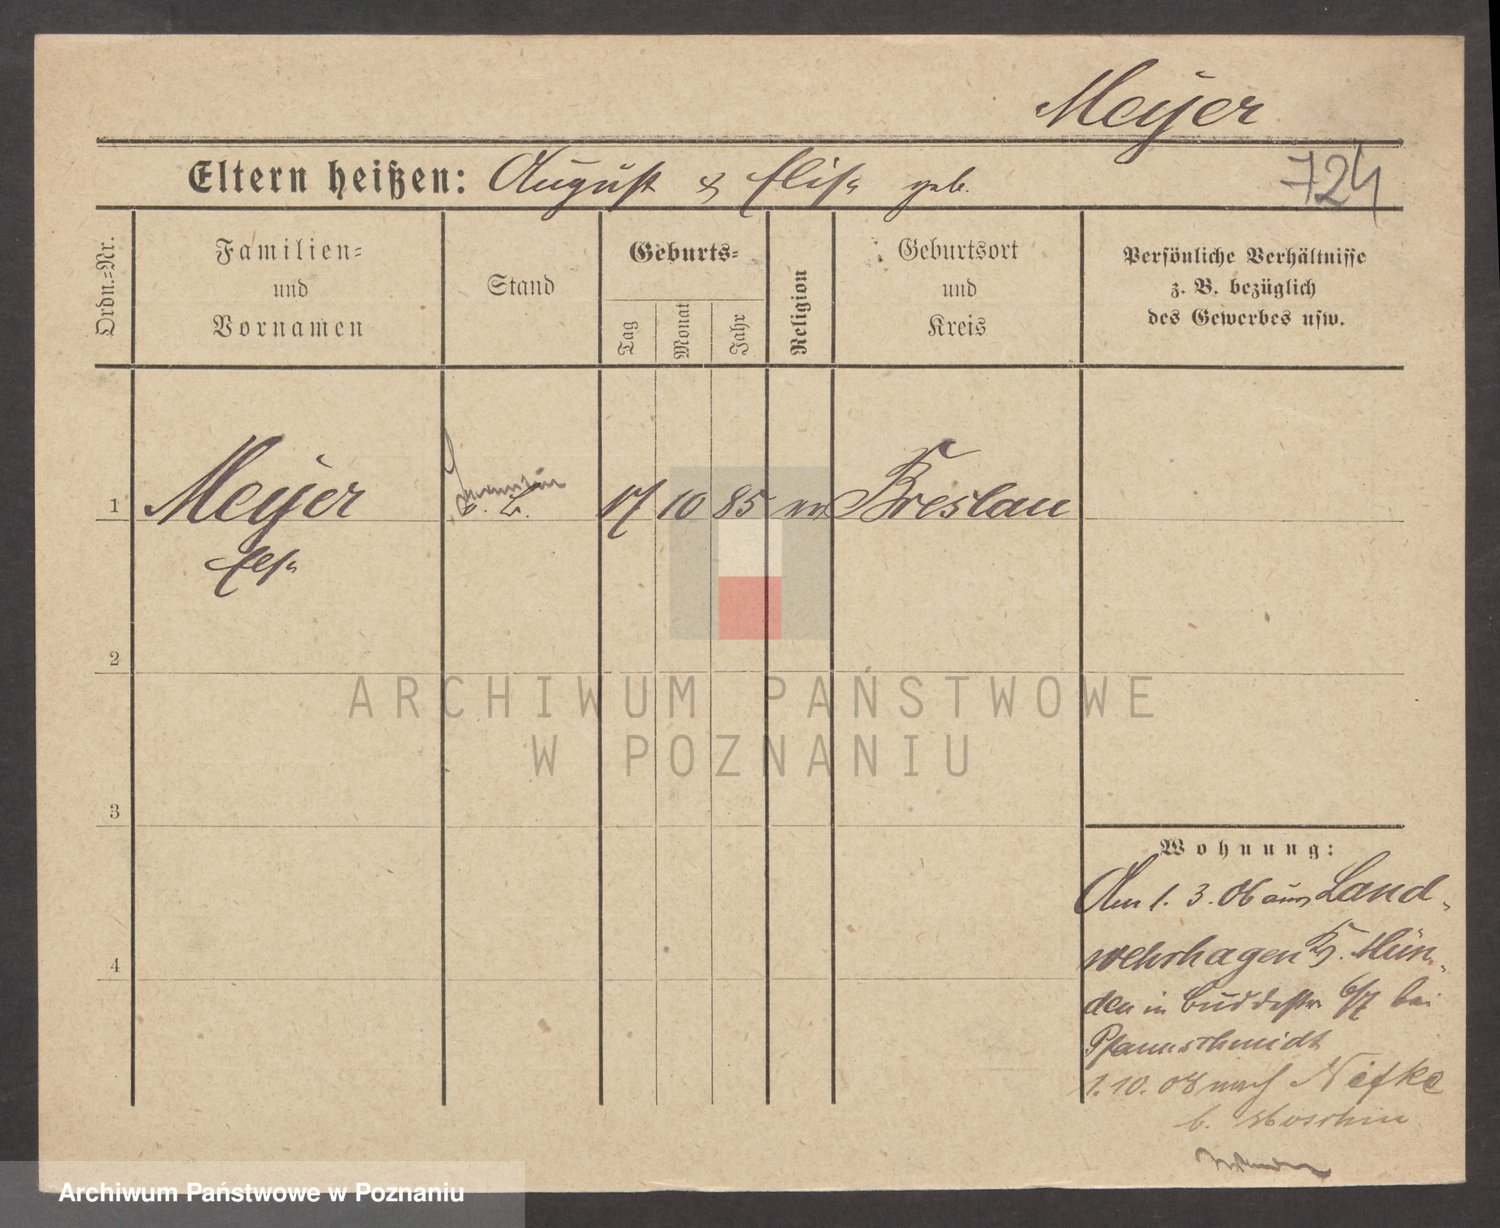 Meyer
Eltern heißen: August & Elise geb.
724
Ordn.-Nr.
Familien-
und
Vornamen
Stand
Geburts-
Tag
Monat
Jahr
Religion
Geburtsort
und
Kreis
Persönliche Verhältnisse
z. B. bezüglich
des Gewerbes usw.
1 Meyer 17 10 85 Breslau
Else
2
3
4
ARCHIWUM PAŃSTWOWE
W POZNANIU
Wohnung:
Am 1. 3. 06 aus Land-
wehrhagen Kr. Mün-
den in Buddestr. 6/7 bei
Pfannschmidt
1. 10. 08 nach
b. Moschin
Archiwum Państwowe w Poznaniu